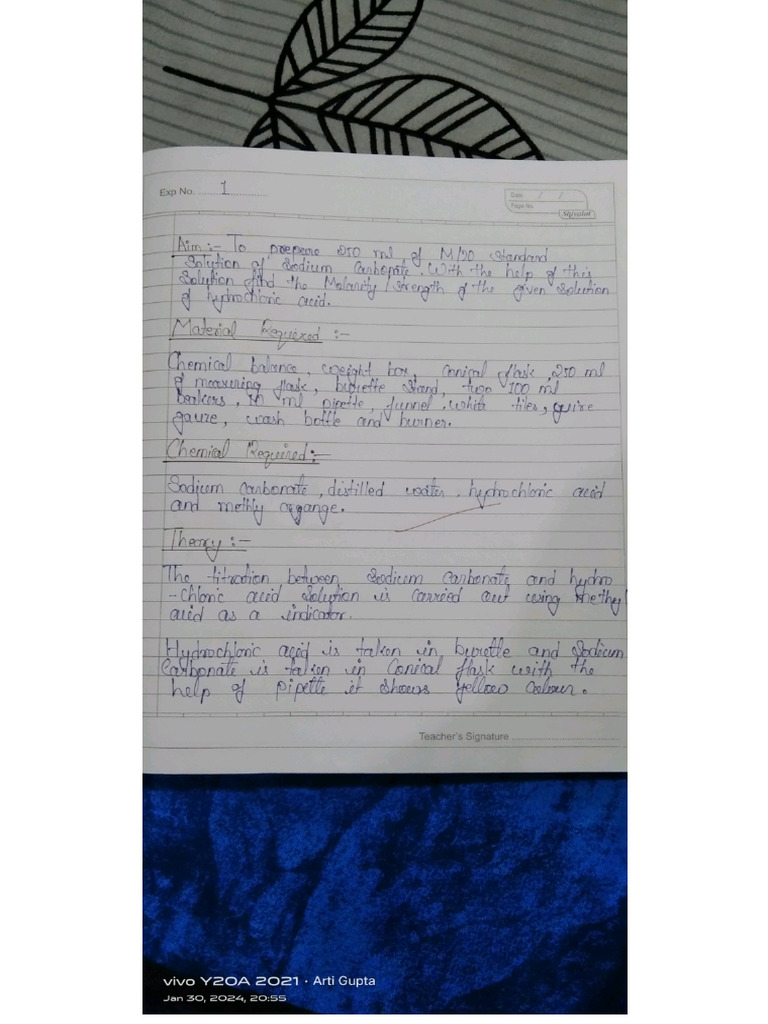 Exp No. 1
Date / /
Page No.
Signature
Aim :- To prepare 250 ml of M/20 Standard
Solution of Sodium Carbonate. With the help of this
Solution find the Molarity / Strength of the given Solution
of hydrochloric acid.
Material Required :-
Chemical balance, weight box, conical flask 250 ml
of measuring flask, burette stand, two 100 ml
beakers, 10 ml pipette, funnel, white tiles, guire
gauze, wash bottle and burner.
Chemical Required :-
Sodium carbonate, distilled water, hydrochloric acid
and methly organge.
Theory :-
The titration between Sodium Carbonate and hydro
-chloric acid Solution is carried out using methyl
acid as a indicator.
Hydrochloric acid is taken in burette and Sodium
Carbonate is taken in Conical flask with the
help of pipette it shows yellow colour.
Teacher's Signature
vivo Y20A 2021 · Arti Gupta
Jan 30, 2024, 20:55